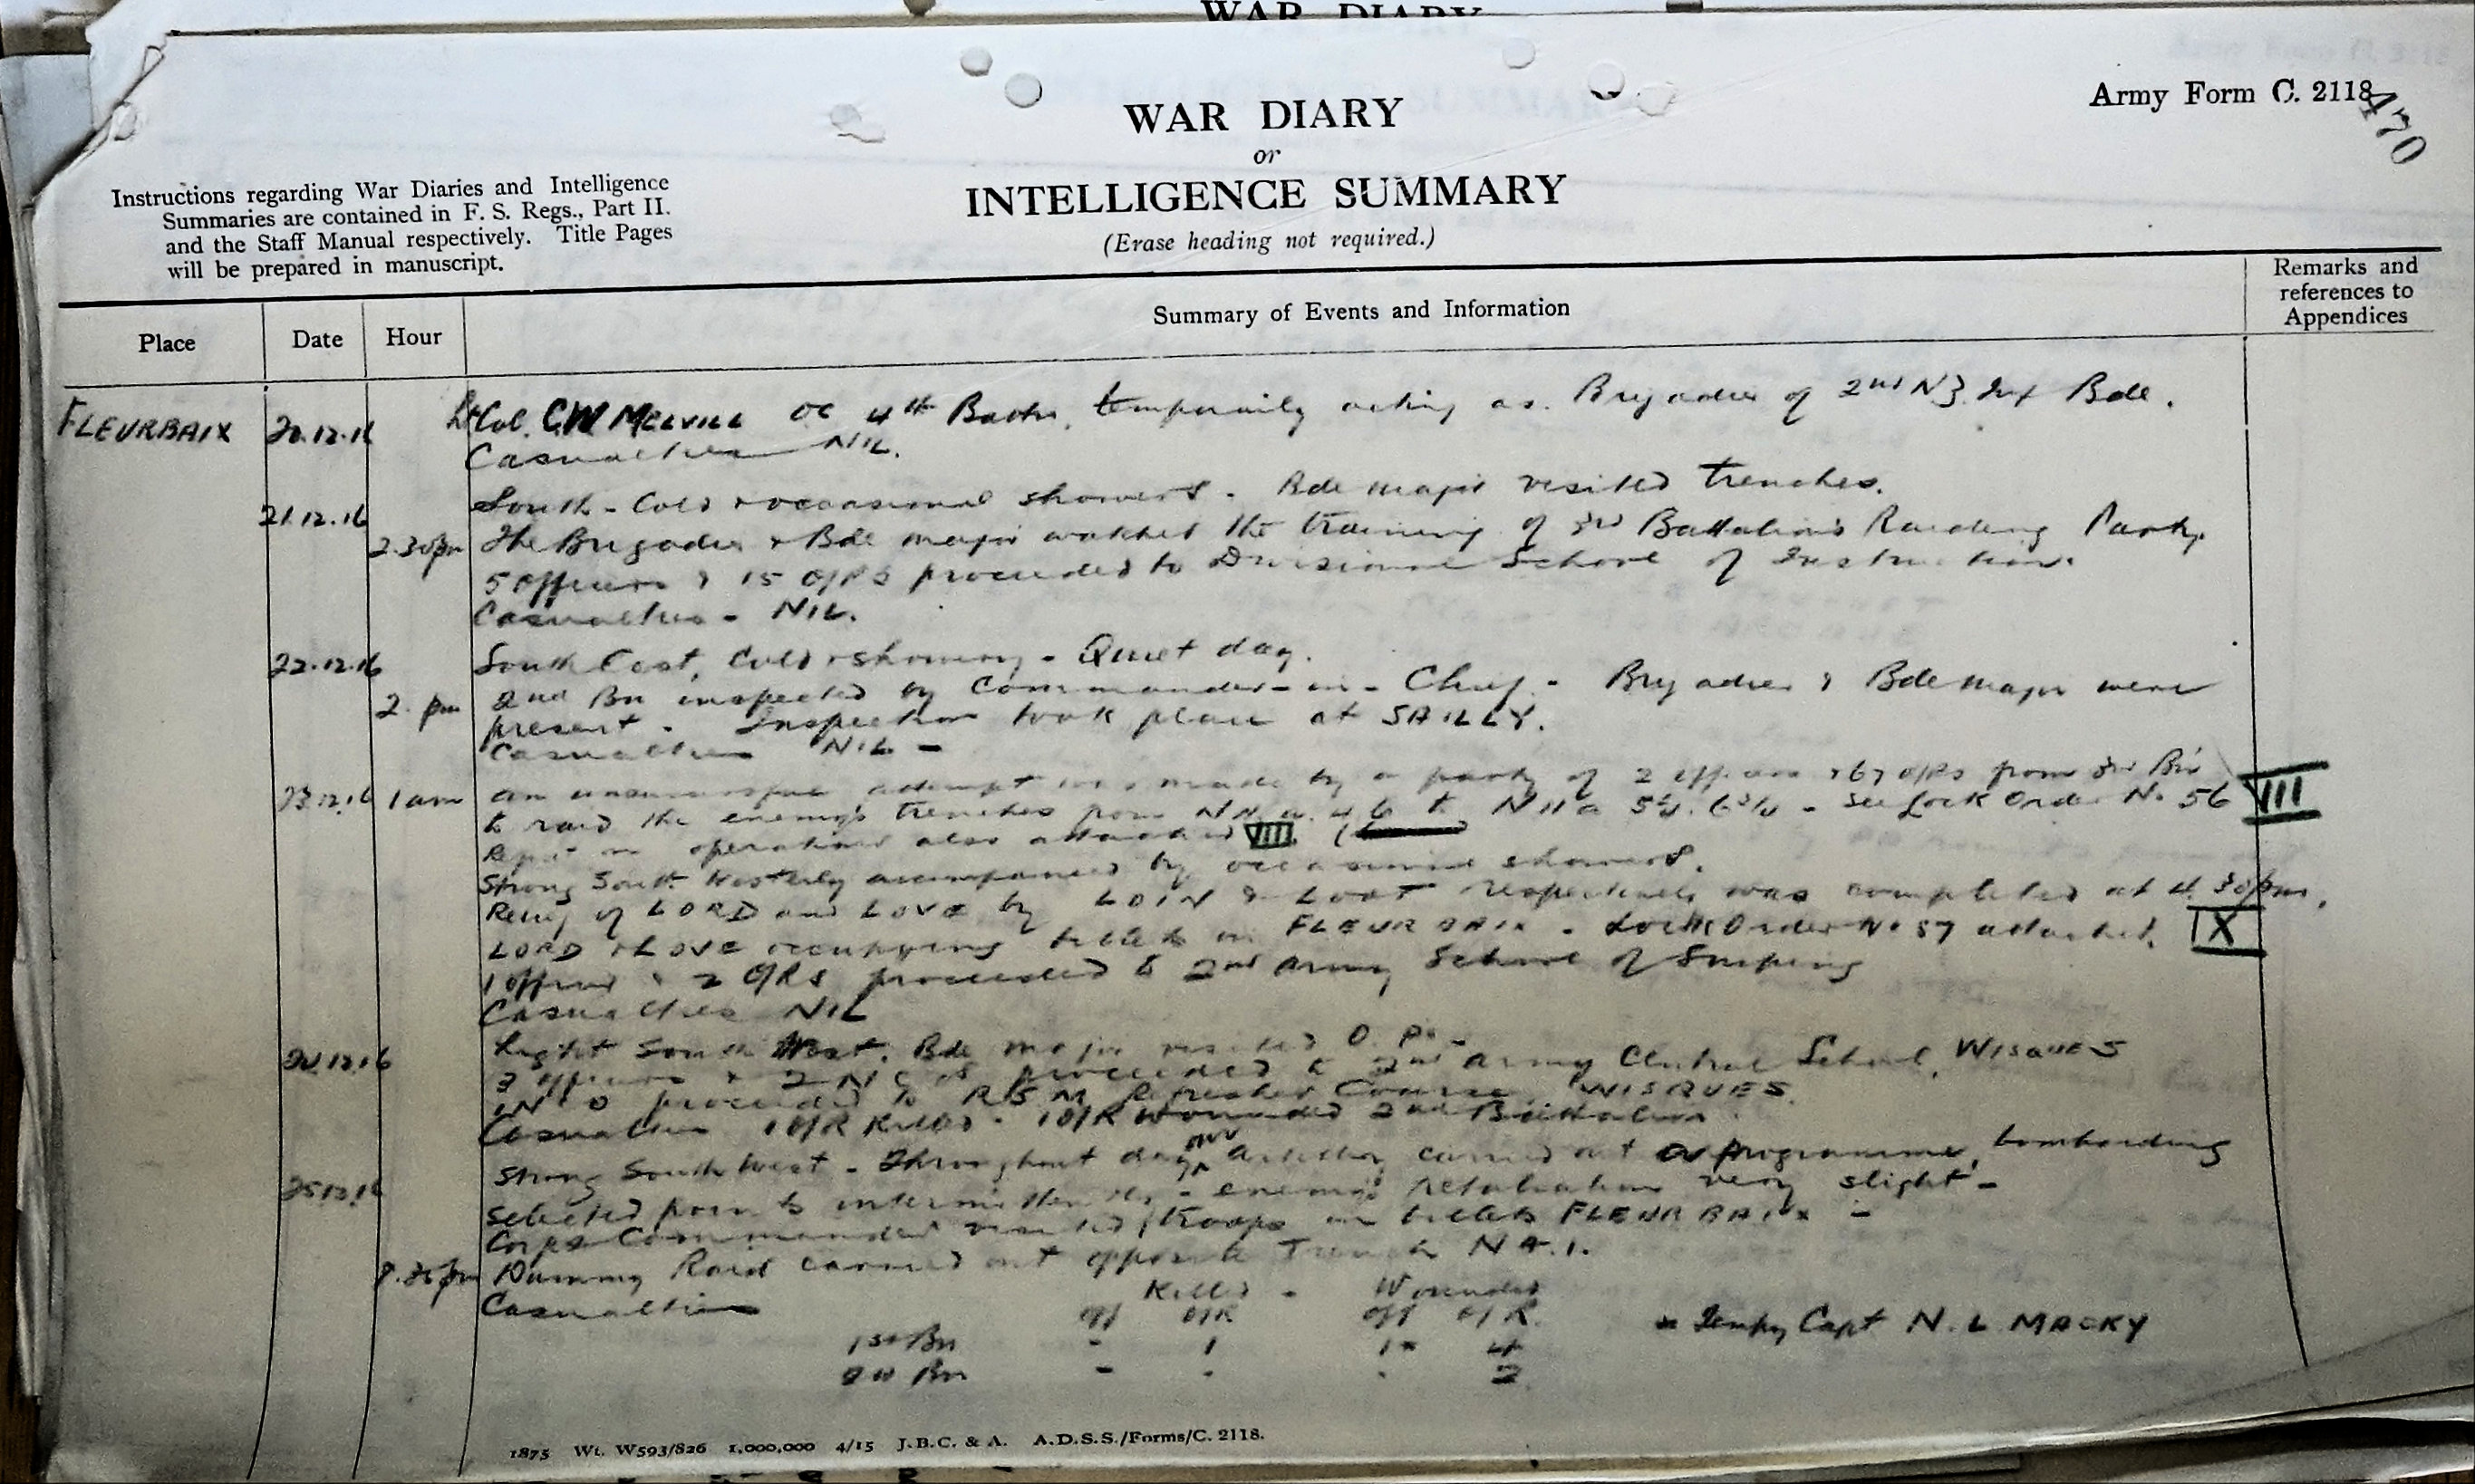 WAR DIARY
Army Form C. 2118
470
WAR DIARY
or
INTELLIGENCE SUMMARY
(Erase heading not required.)
Instructions regarding War Diaries and Intelligence
Summaries are contained in F. S. Regs., Part II.
and the Staff Manual respectively. Title Pages
will be prepared in manuscript.
Place Date Hour Summary of Events and Information Remarks and references to Appendices
FLEURBAIX 20.12.16 Lt Col. CW MELVILL OC 4th Battn. temporarily acting as Brigadier of 2nd NZ Inf Bde.
Casualties NIL.
21.12.16 South - Cold & occasional showers. Bde Major visited trenches.
2.30pm The Brigadier & Bde Major watched the training of 3rd Battalion's Raiding Party.
5 officers & 15 O/RS proceeded to Divisional School of Instruction.
Casualties - NIL.
22.12.16 South East, Cold & showery - Quiet day.
2. pm 2nd Bn inspected by Commander-in-Chief - Brigadier & Bde Major were
present - Inspection took place at SAILLY.
Casualties NIL -
23.12.16 1am An unsuccessful attempt was made by a party of 2 officers & 67 O/RS from 3rd Bn
to raid the enemy's trenches from N11 a. 4 6 to N11a 5¼. 6¾ - See Lock Order No. 56 VII
Report on operations also attached VIII. (
Strong South Westerly accompanied by occasional showers.
Relief of LORD and LOVE by LOIN & LOOT respectively was completed at 4.30pm.
LORD & LOVE occupying billets in FLEURBAIX - Lock Order No 57 attached. X
1 officer & 2 O/RS proceeded to 2nd Army School of Sniping
Casualties NIL
24.12.16 Light South West. Bde Major visited O. Ps -
3 officers & 2 NCOs proceeded to 2nd Army Central School, WISQUES
1 NCO proceeded to RSM Refresher Course, WISQUES.
Casualties 1 O/R Killed - 1 O/R Wounded 2nd Battalion
25.12.16 Strong South West - Throughout day our Artillery carried out a programme, bombarding
selected points intermittently - enemy's retaliation very slight -
Corps Commander visited troops in billets FLEURBAIX -
Dummy Raid carried out opposite Trench N 4.1.
Casualties Killed - Wounded
Off O/R Off O/R.
1st Bn - 1 1* 4
2nd Bn - - . 2
* Tempy Capt N. L MACKY
1875 Wt. W593/826 1,000,000 4/15 J.B.C. & A. A.D.S.S./Forms/C. 2118.